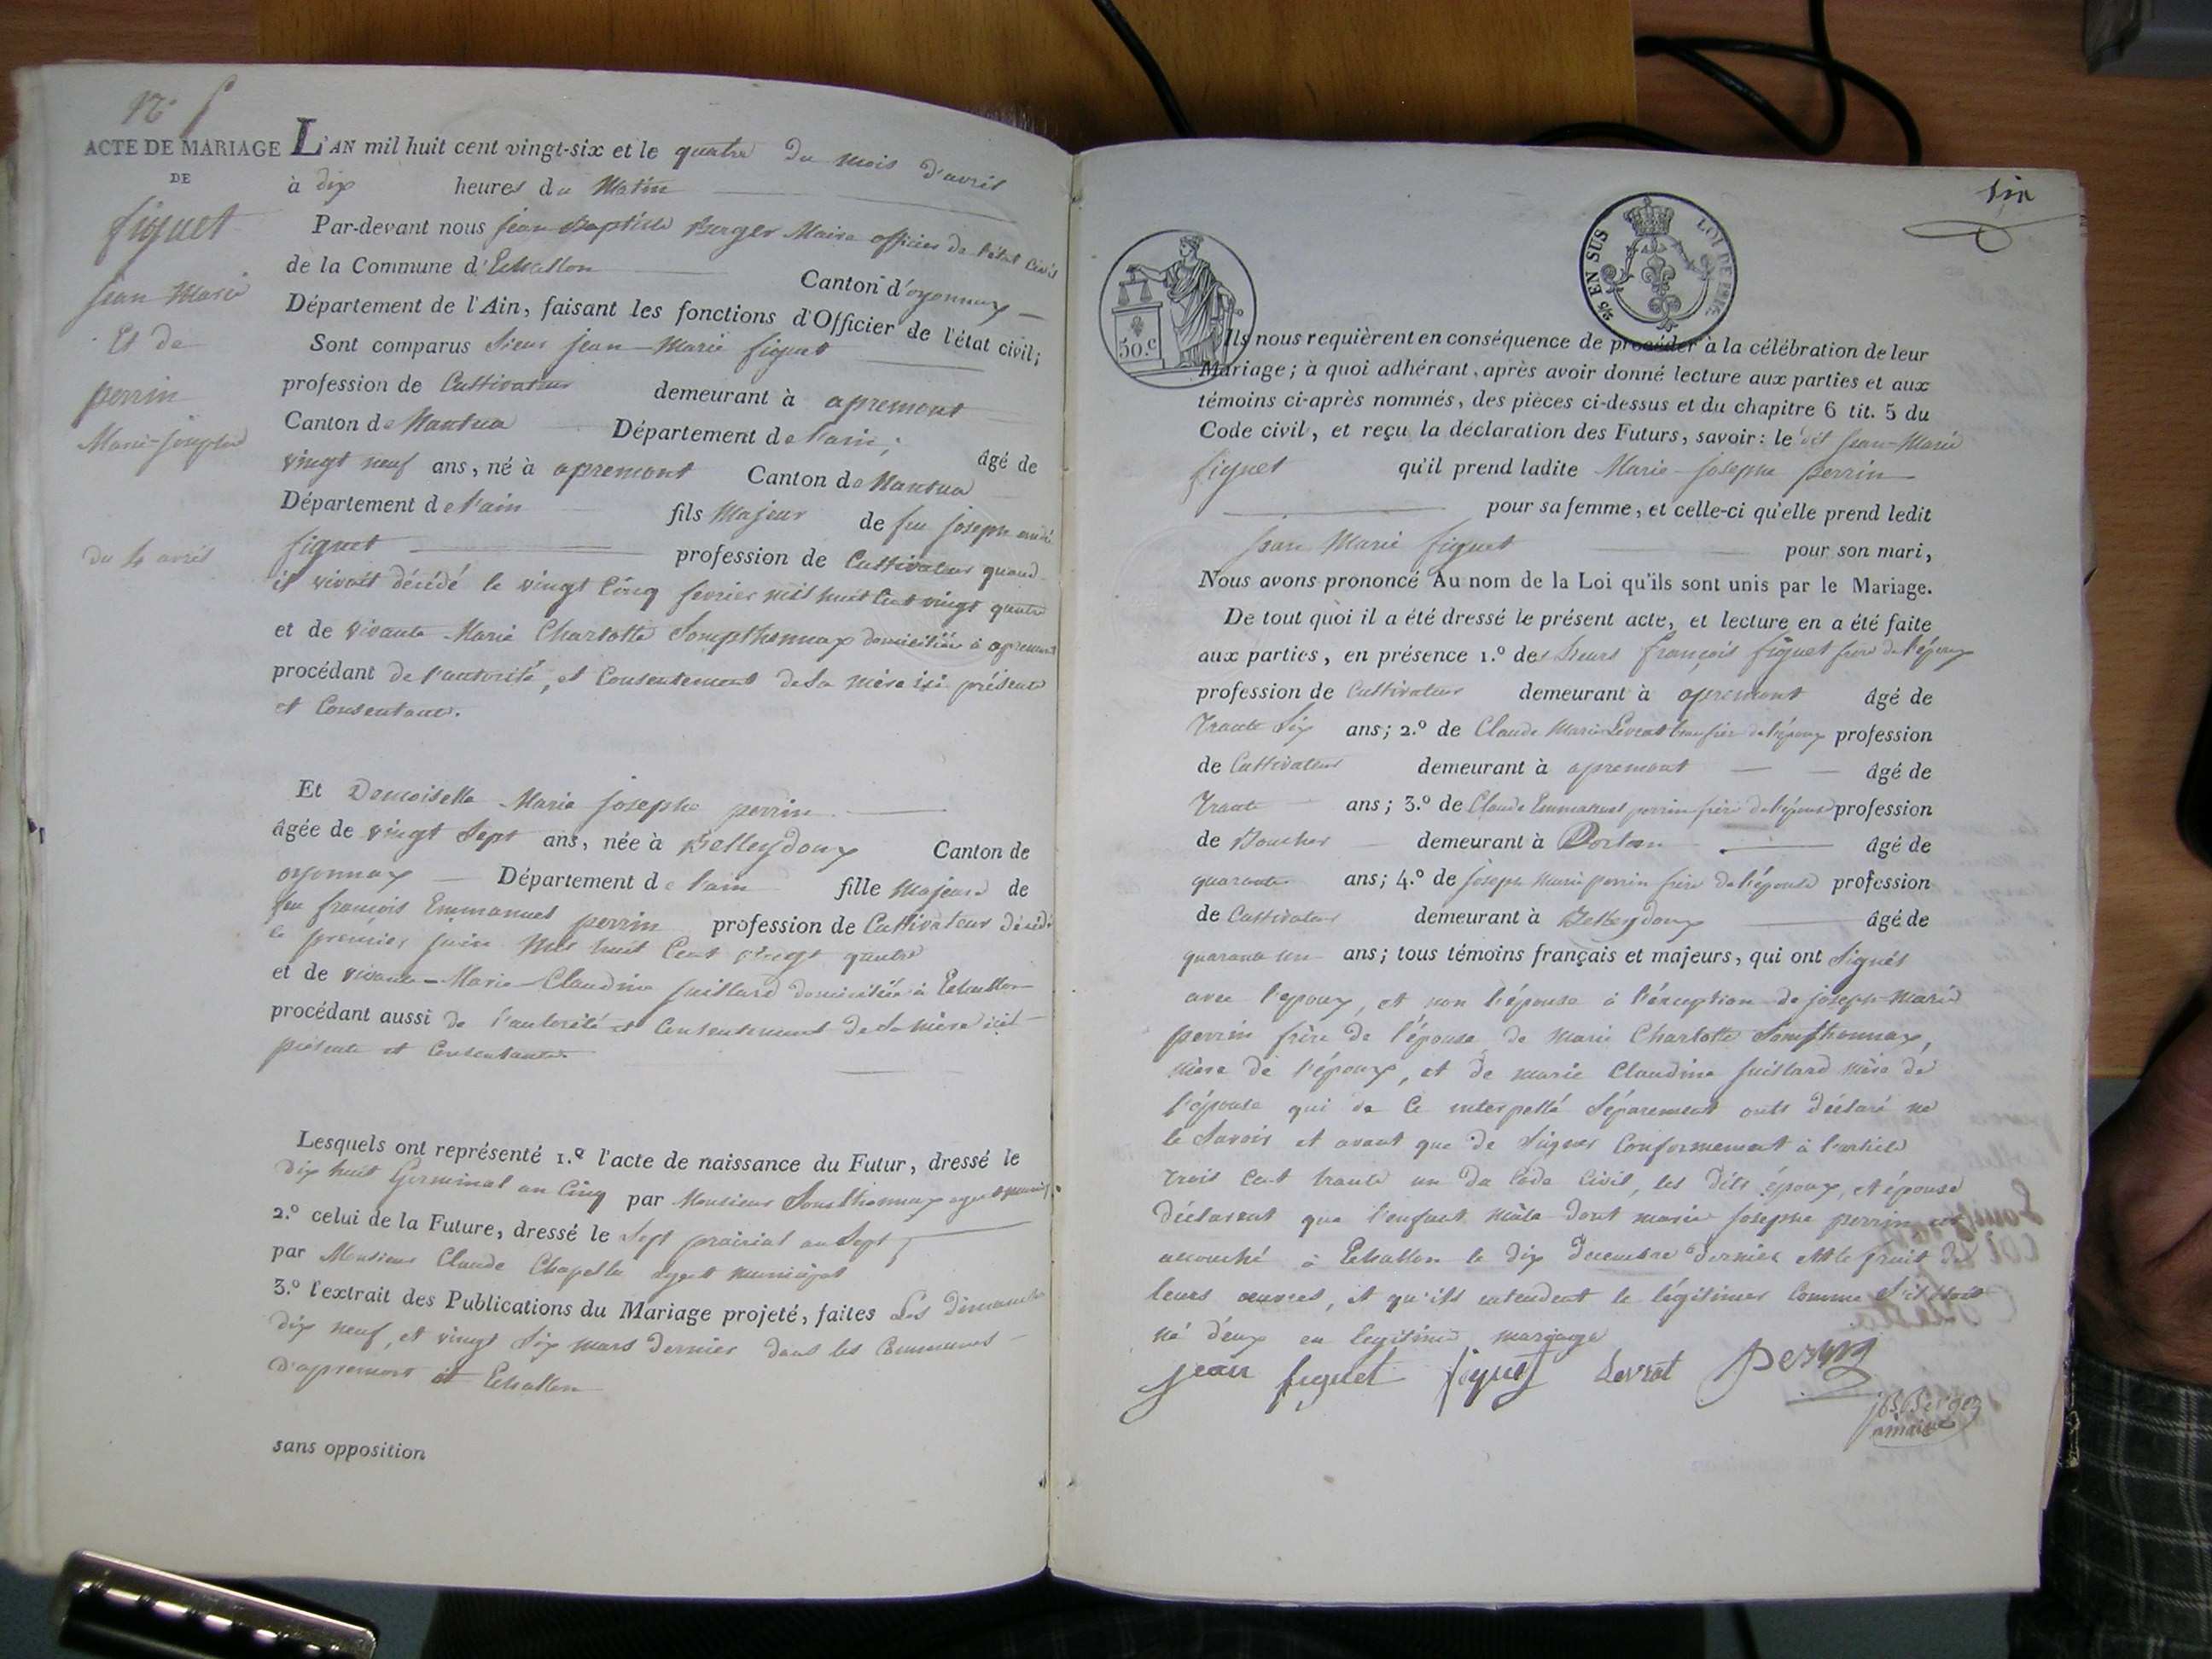 N° 5
ACTE DE MARIAGE
DE
figuet
jean Marie
Et de
perrin
Marie-josephe
du 4 avril
L'AN mil huit cent vingt-six et le quatre du mois d'avril
à dix heures du Matin
Par-devant nous jean Baptiste Burger Maire officier de l'état Civil
de la Commune d'Echallon Canton d'oyonnax
Département de l'Ain, faisant les fonctions d'Officier de l'état civil;
Sont comparus Sieur jean-Marie figuet
profession de Cultivateur demeurant à apremont
Canton de Nantua Département de l'ain; âgé de
vingt neuf ans, né à apremont Canton de Nantua
Département de l'ain fils Majeur de feu joseph andré
figuet profession de Cultivateur quand
il vivoit décédé le vingt Cinq fevrier mil huit Cent vingt quatre
et de vivante Marie Charlotte Sompthonnax domiciliée à apremont
procédant de l'autorité, et Consentement de Sa mère ici présente
et Consentante.
Et Demoiselle Marie josephe perrin
âgée de vingt Sept ans, née à Belleydoux Canton de
oyonnax Département de l'ain fille majeure de
feu françois Emmanuel perrin profession de Cultivateur décédé
le premier juin Mil huit Cent vingt quatre
et de vivante-Marie-Claudine juillard domiciliée à Echallon
procédant aussi de l'autorité et Consentement de Sa mère ici
présente et Consentante.
Lesquels ont représenté 1.º l'acte de naissance du Futur, dressé le
dix huit Germinal an Cinq par Monsieur Sonthonnax agent municip.
2.º celui de la Future, dressé le Sept prairial an Sept
par Monsieur Claude Chapelle agent municipal
3.º l'extrait des Publications du Mariage projeté, faites Les dimanches
dix neuf, et vingt Six mars dernier dans les Communes
d'apremont et Echallon
sans opposition
Six
50.c
25 EN SUS
LOI DE 1816.
Ils nous requièrent en conséquence de procéder à la célébration de leur
Mariage; à quoi adhérant, après avoir donné lecture aux parties et aux
témoins ci-après nommés, des pièces ci-dessus et du chapitre 6 tit. 5 du
Code civil, et reçu la déclaration des Futurs, savoir: le dit jean-Marie
figuet qu'il prend ladite Marie-josephe perrin
pour sa femme, et celle-ci qu'elle prend ledit
jean Marie figuet pour son mari,
Nous avons prononcé Au nom de la Loi qu'ils sont unis par le Mariage.
De tout quoi il a été dressé le présent acte, et lecture en a été faite
aux parties, en présence 1.º des Sieurs françois figuet frère de l'époux
profession de Cultivateur demeurant à apremont âgé de
Trante Six ans; 2.º de Claude Marie Levrat beau frère de l'époux profession
de Cultivateur demeurant à apremont âgé de
Trante ans; 3.º de Claude Emmanuel perrin frère de l'épouse profession
de Boucher demeurant à Dortan âgé de
quarante ans; 4.º de joseph Marie perrin frère de l'épouse profession
de Cultivateur demeurant à Belleydoux âgé de
quarante un ans; tous témoins français et majeurs, qui ont Signés
avec l'epoux, et non l'épouse à l'éxception de joseph-marie
perrin frère de l'épouse de marie Charlotte Sompthonnax,
mère de l'époux, et de marie Claudine juillard mère de
l'épouse qui de Ce interpellé Séparement onts déclaré ne
le Savoir et avant que de Signer Conformement à l'article
trois Cent trante un du Code Civil, les dits époux, et épouse
déclarent que l'enfant mâle dont marie josephe perrin est
accouché à Echallon le dix decembre dernier est le fruit de
leurs œuvres, et qu'ils entendent le légitimer Comme S'il étoit
né d'eux en legitime mariage
jean figuet figuet Levrat Perrin
jB Burger
maire